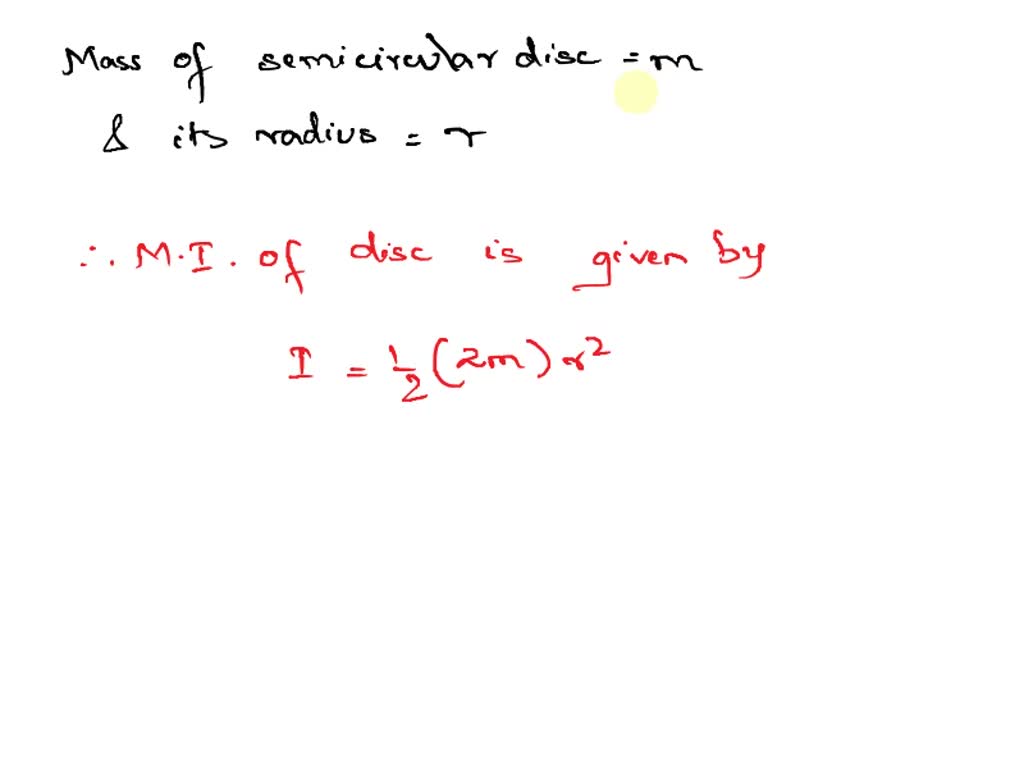 Mass of semicircular disc = m
& its radius = r
∴ M.I. of disc is given by
I = 1/2 (2m) r²